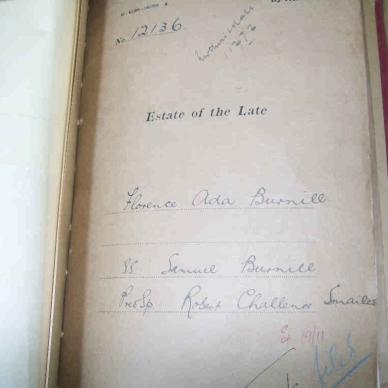 No. 12136
Estate of the Late
Florence Ada Burnill
SS Samuel Burnill
PreSp Robert Challenor Smailes
19/11
filed